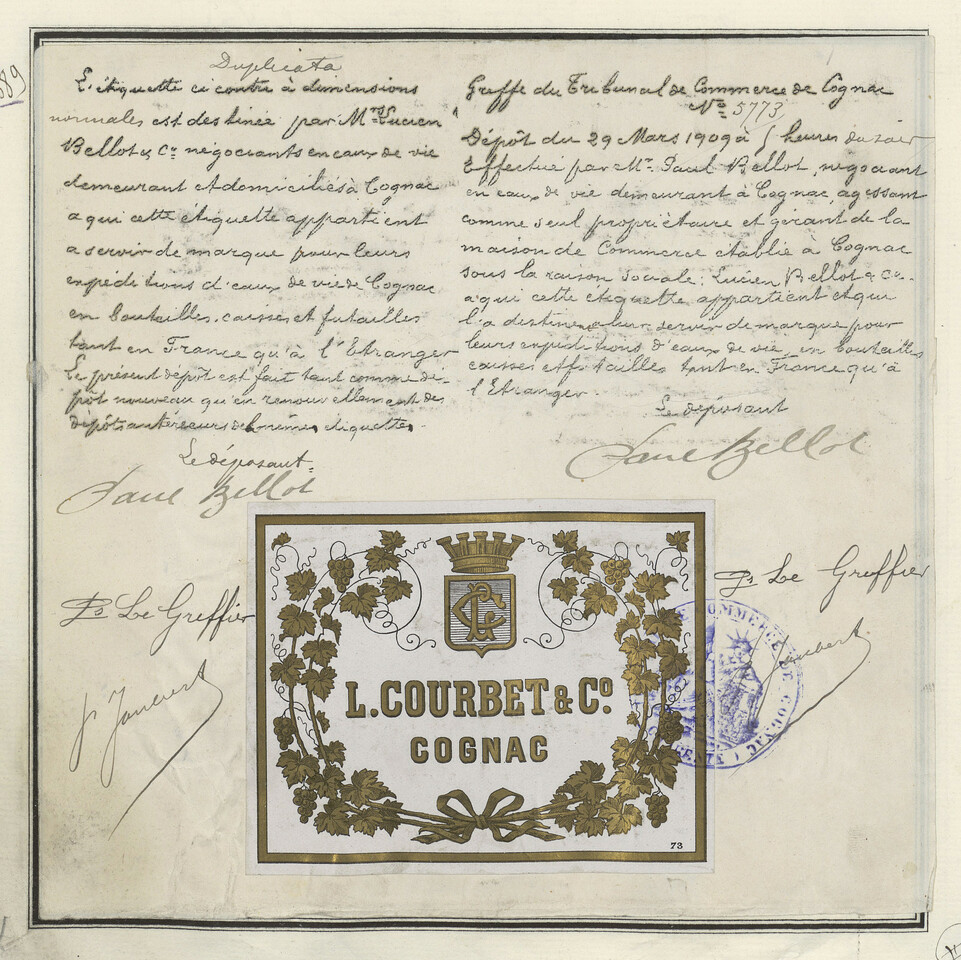 Duplicata
L'étiquette ci contre à dimensions
normales est destinée par Mrs Lucien
Bellot & Co négociants en eaux de vie
demeurant et domiciliés à Cognac
a qui cette étiquette appartient
a servir de marque pour leurs
expéditions d'eaux de vie de Cognac
en bouteilles, caisses et futailles
tant en France qu'à l'Etranger
Le présent dépôt est fait tant comme dé-
pôt nouveau qu'en renouvellement des
dépôts antérieurs de mêmes étiquettes.
Le déposant.
Paul Bellot
Po Le Greffier
Greffe du Tribunal de Commerce de Cognac
No 5773
Dépôt du 29 Mars 1909 à heures du soir
Effectué par Mr. Paul Bellot, négociant
en eaux de vie demeurant à Cognac, agissant
comme seul propriétaire et gérant de la
maison de Commerce établie à Cognac
sous la raison sociale: Lucien Bellot & Co-
a qui cette étiquette appartient et qui
l'a destinée a leur servir de marque pour
leurs expéditions d'eaux de vie en bouteilles
caisses et futailles tant en France qu'à
l'Etranger.
Le déposant
Paul Bellot
Po Le Greffier
L. COURBET & Co.
COGNAC
73
COMMERCE DE COGNAC
889